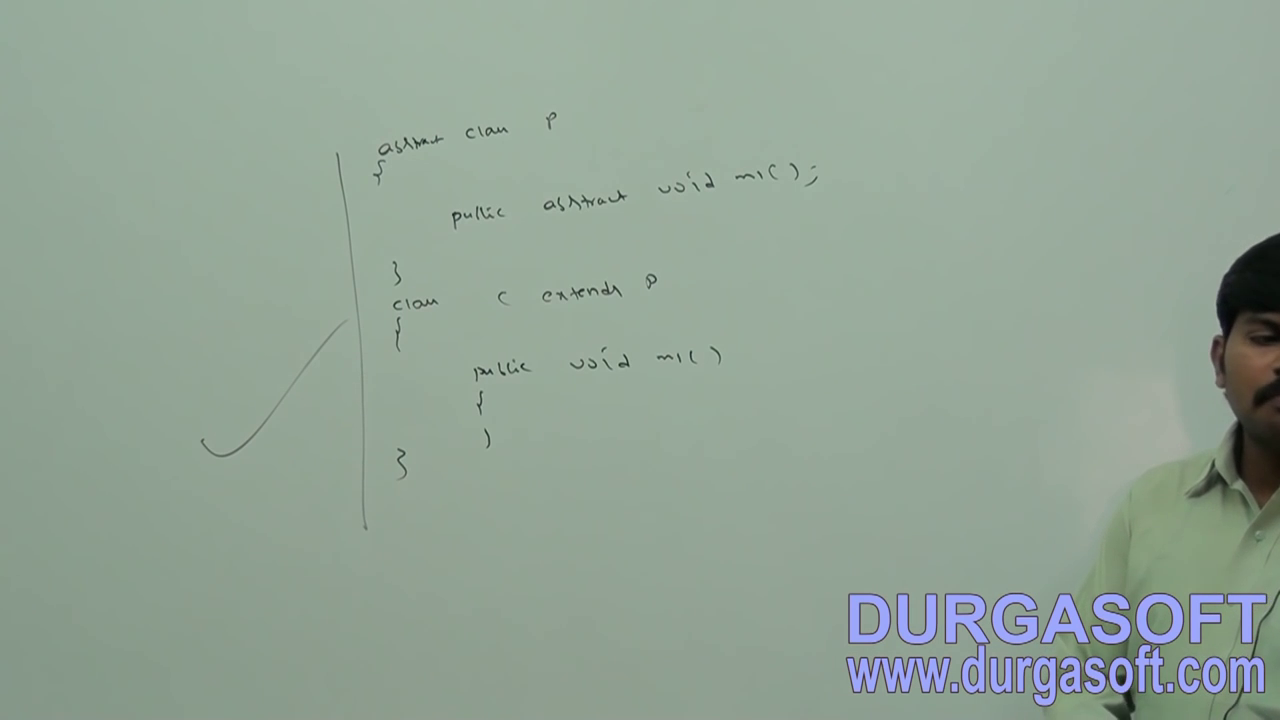 abstract class P
{
public abstract void m1();
}
class C extends P
{
public void m1()
{
}
}
DURGASOFT
www.durgasoft.com